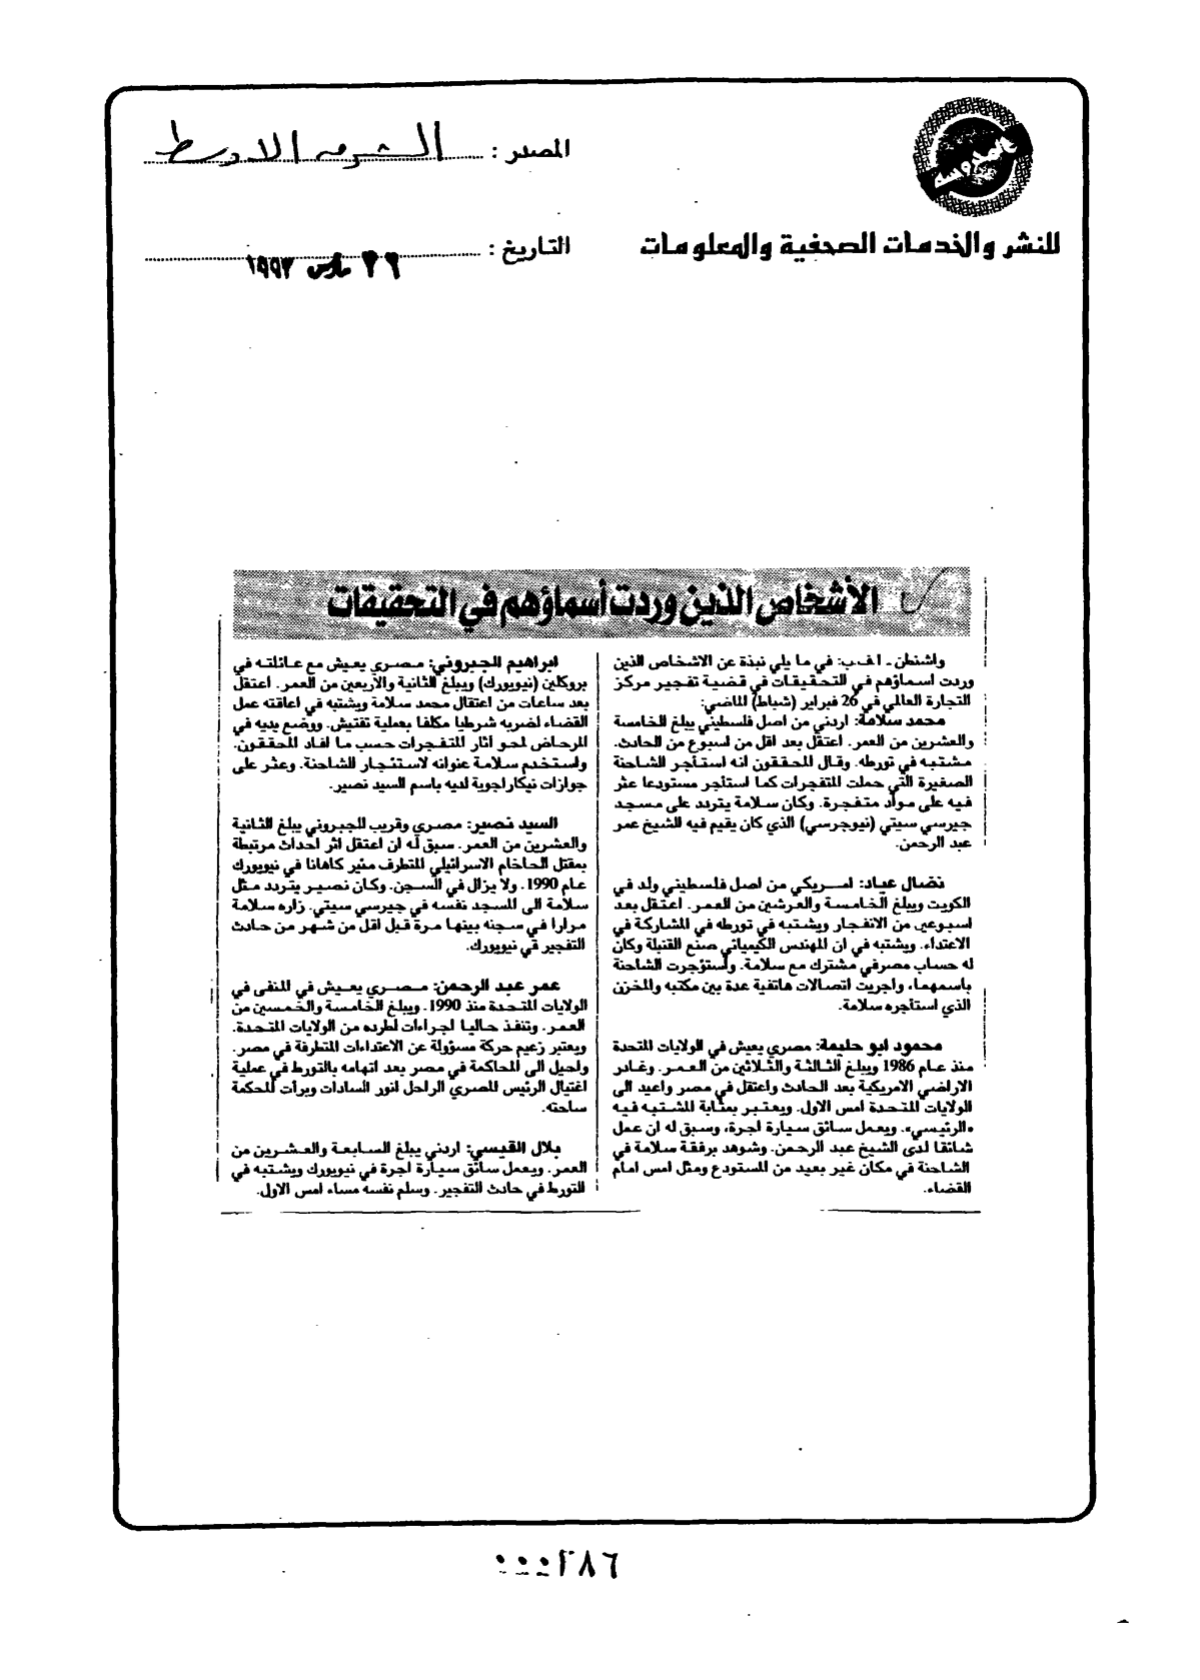 المصدر : الشرق الاوسط
المحروسة
للنشر والخدمات الصحفية والمعلومات
التاريخ : ٢٦ مارس ١٩٩٣
الأشخاص الذين وردت أسماؤهم في التحقيقات
واشنطن ـ ا.ف.ب: في ما يلي نبذة عن الاشخاص الذين
وردت اسماؤهم في التحقيقات في قضية تفجير مركز
التجارة العالمي في 26 فبراير (شباط) الماضي:
محمد سلامة: اردني من اصل فلسطيني يبلغ الخامسة
والعشرين من العمر. اعتقل بعد اقل من اسبوع من الحادث.
مشتبه في تورطه. وقال المحققون انه استأجر الشاحنة
الصغيرة التي حملت المتفجرات كما استأجر مستودعا عثر
فيه على مواد متفجرة. وكان سلامة يتردد على مسجد
جيرسي سيتي (نيوجرسي) الذي كان يقيم فيه الشيخ عمر
عبد الرحمن.
نضال عياد: امريكي من اصل فلسطيني ولد في
الكويت ويبلغ الخامسة والعرشين من العمر. اعتقل بعد
اسبوعين من الانفجار ويشتبه في تورطه في المشاركة في
الاعتداء. ويشتبه في ان المهندس الكيميائي صنع القنبلة وكان
له حساب مصرفي مشترك مع سلامة. واستؤجرت الشاحنة
باسمهما، واجريت اتصالات هاتفية عدة بين مكتبه والمخزن
الذي استأجره سلامة.
محمود ابو حليمة: مصري يعيش في الولايات المتحدة
منذ عام 1986 ويبلغ الثالثة والثلاثين من العمر. وغادر
الاراضي الامريكية بعد الحادث واعتقل في مصر واعيد الى
الولايات المتحدة امس الاول. ويعتبر بمثابة المشتبه فيه
«الرئيسي». ويعمل سائق سيارة اجرة، وسبق له ان عمل
سائقا لدى الشيخ عبد الرحمن. وشوهد برفقة سلامة في
الشاحنة في مكان غير بعيد من المستودع ومثل امس امام
القضاء.
ابراهيم الجبروني: مصري يعيش مع عائلته في
بروكلين (نيويورك) ويبلغ الثانية والأربعين من العمر. اعتقل
بعد ساعات من اعتقال محمد سلامة ويشتبه في اعاقته عمل
القضاء لضربه شرطيا مكلفا بعملية تفتيش. ووضع يديه في
المرحاض لمحو آثار المتفجرات حسب ما افاد المحققون.
واستخدم سلامة عنوانه لاستئجار الشاحنة. وعثر على
جوازات نيكاراجوية لديه باسم السيد نصير.
السيد نصير: مصري وقريب للجبروني يبلغ الثانية
والعشرين من العمر. سبق له ان اعتقل اثر احداث مرتبطة
بمقتل الحاخام الاسرائيلي المتطرف مئير كاهانا في نيويورك
عام 1990. ولا يزال في السجن. وكان نصير يتردد مثل
سلامة الى المسجد نفسه في جيرسي سيتي. زاره سلامة
مرارا في سجنه بينها مرة قبل اقل من شهر من حادث
التفجير في نيويورك.
عمر عبد الرحمن: مصري يعيش في المنفى في
الولايات المتحدة منذ 1990. ويبلغ الخامسة والخمسين من
العمر. وتنفذ حاليا اجراءات لطرده من الولايات المتحدة.
ويعتبر زعيم حركة مسؤولة عن الاعتداءات المتطرفة في مصر.
واحيل الى المحاكمة في مصر بعد اتهامه بالتورط في عملية
اغتيال الرئيس المصري الراحل انور السادات وبرأت المحكمة
ساحته.
بلال القيسي: اردني يبلغ السابعة والعشرين من
العمر. ويعمل سائق سيارة اجرة في نيويورك ويشتبه في
التورط في حادث التفجير. وسلم نفسه مساء امس الاول.